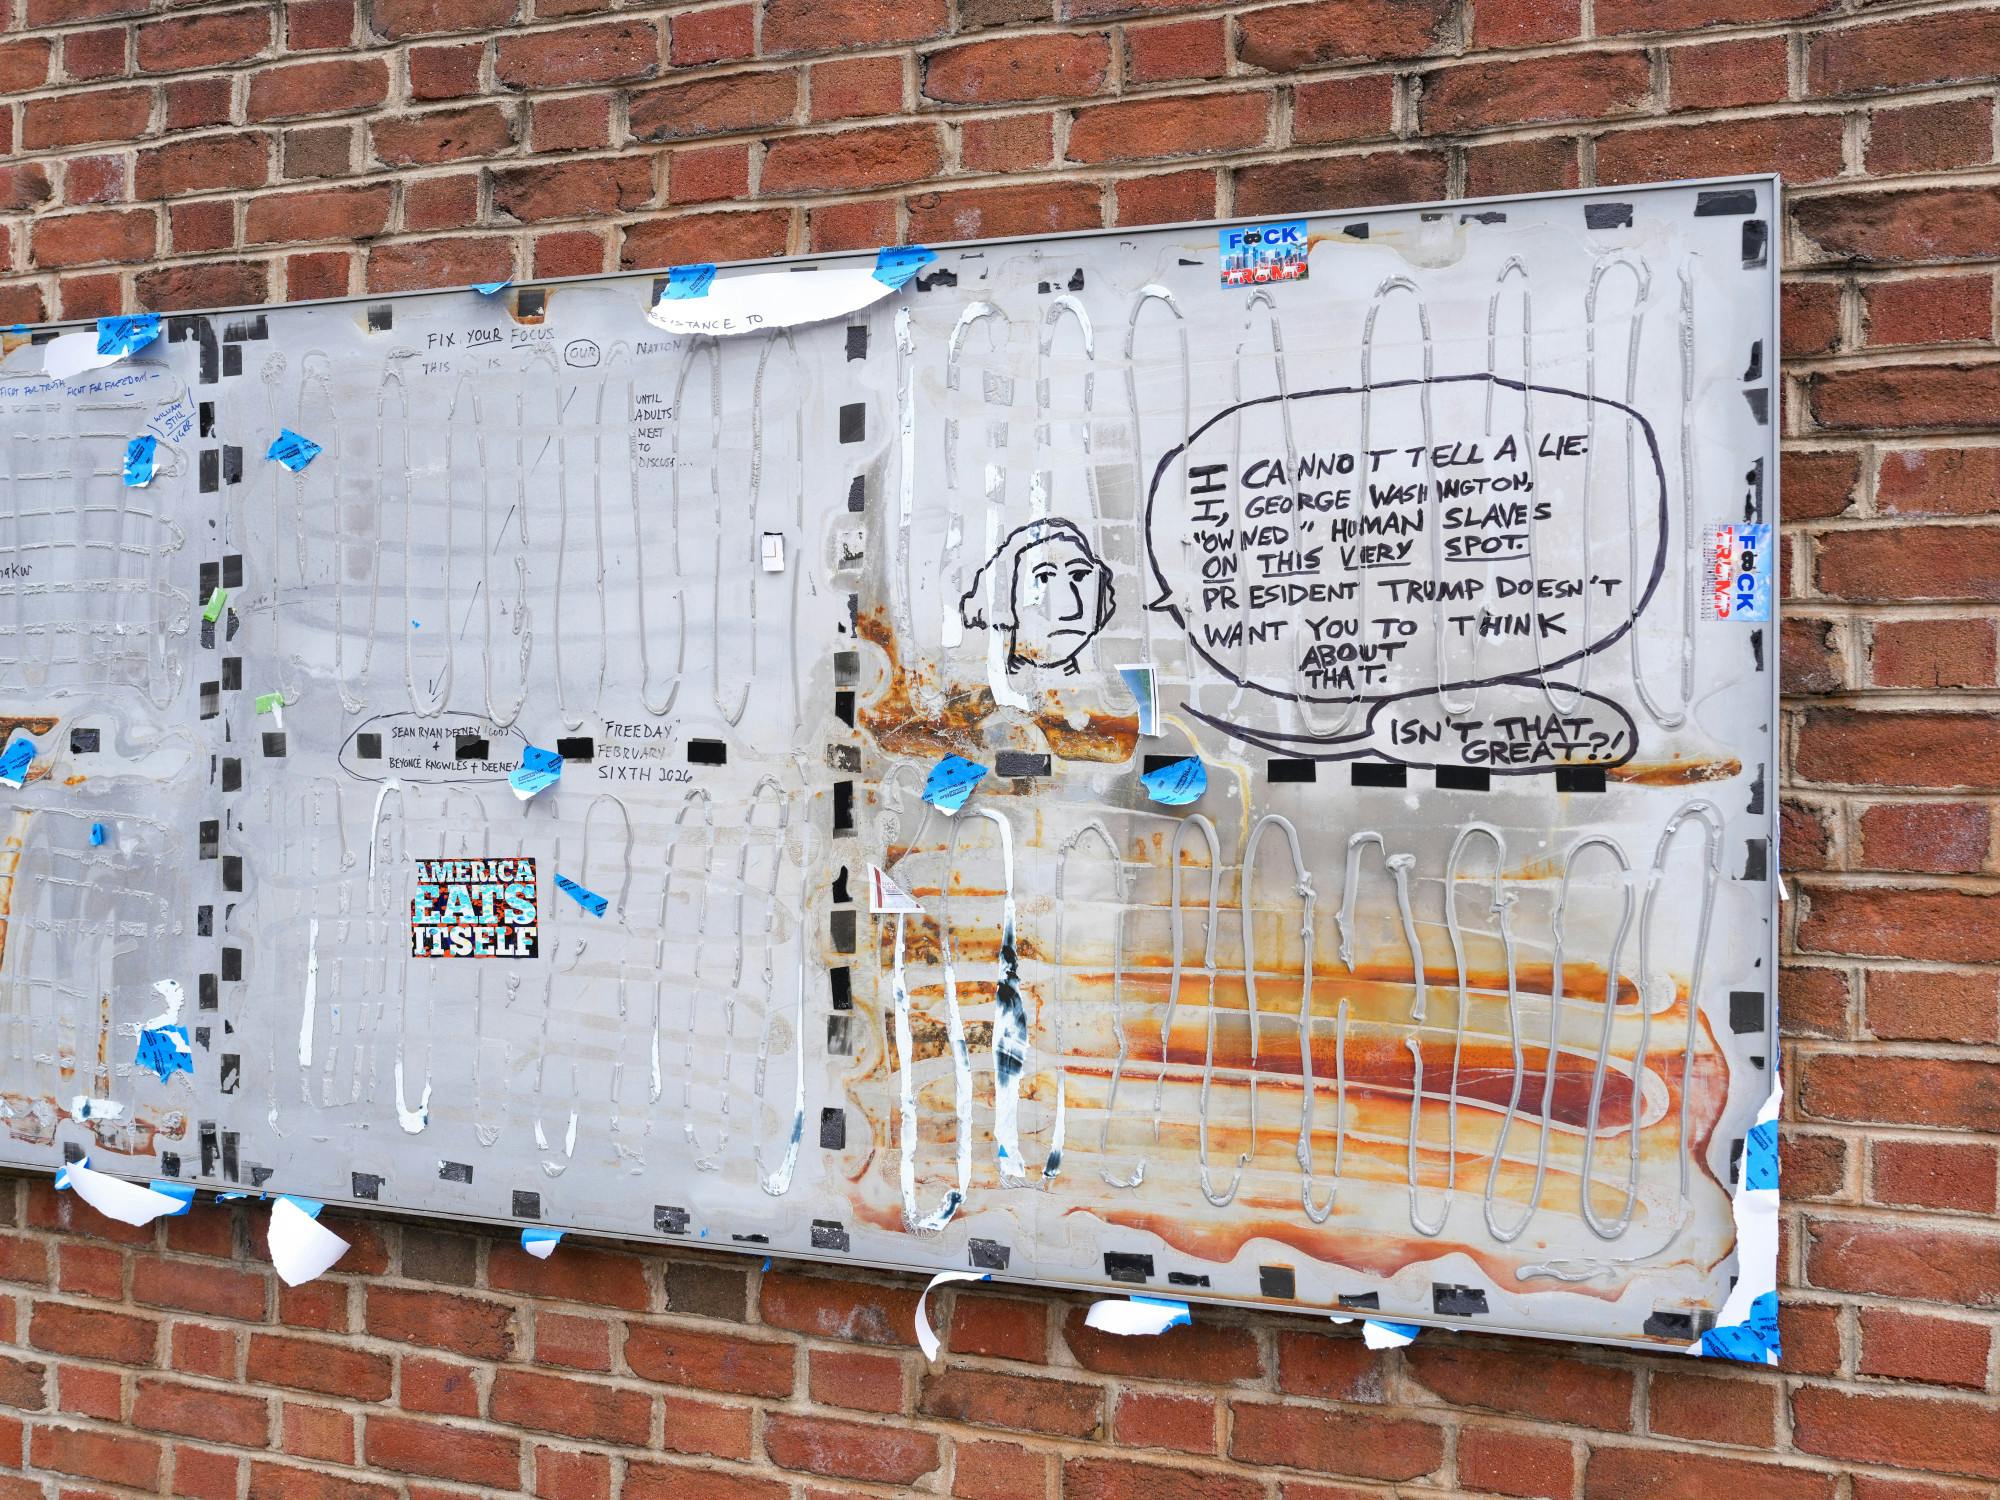 FIGHT FOR TRUTH FIGHT FOR FREEDOM —
WILLIAM
STILL
UGRR
FIX YOUR FOCUS
THIS IS OUR NATION
UNTIL
ADULTS
MEET
TO
DISCUSS...
ESISTANCE TO
SEAN RYAN DEENEY (GOD)
+
BEYONCÉ KNOWLES + DEENEY
"FREEDAY,"
FEBRUARY
SIXTH 2026
AMERICA
EATS
ITSELF
F CK
TRUMP
I CANNOT TELL A LIE.
I, GEORGE WASHINGTON,
"OWNED" HUMAN SLAVES
ON THIS VERY SPOT.
PRESIDENT TRUMP DOESN'T
WANT YOU TO THINK
ABOUT
THAT.
ISN'T THAT
GREAT?!
F CK
TRUMP